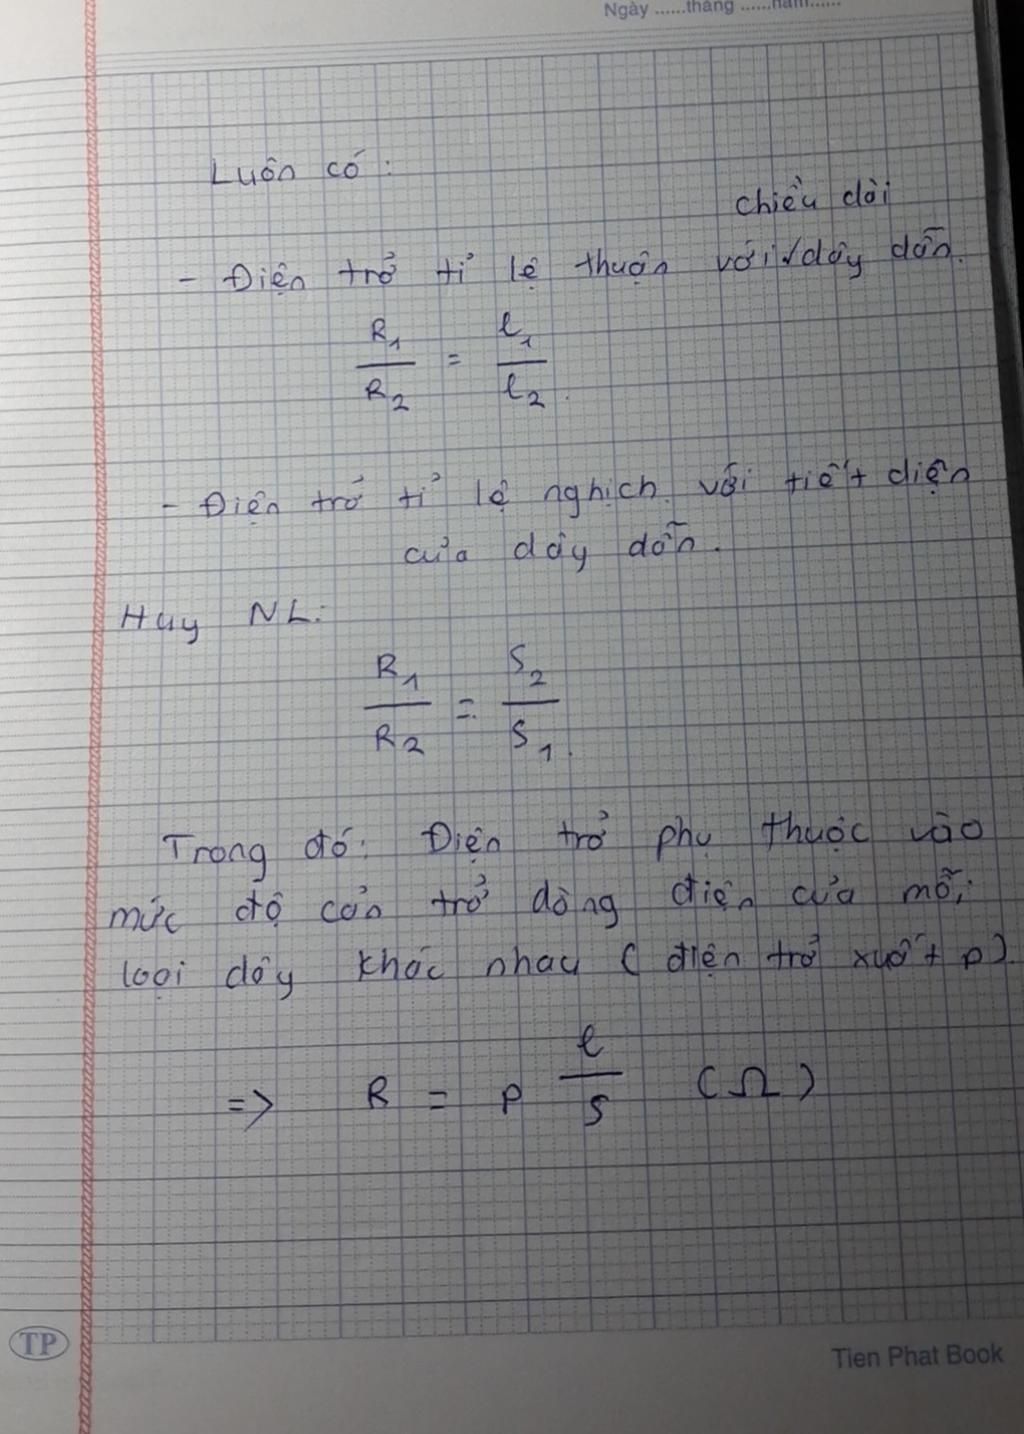 Ngày ......tháng ......năm......
Luôn có :
chiều dài
- Điện trở tỉ lệ thuận với √ dây dẫn.
R₁ / R₂ = l₁ / l₂ .
- Điện trở tỉ lệ nghịch với tiết diện
của dây dẫn.
Huy NL:
R₁ / R₂ = S₂ / S₁ .
Trong đó: Điện trở phụ thuộc vào
mức độ cản trở dòng điện của mỗi
loại dây khác nhau ( điện trở xuất ρ ).
=> R = ρ l / S (Ω)
TP
Tien Phat Book